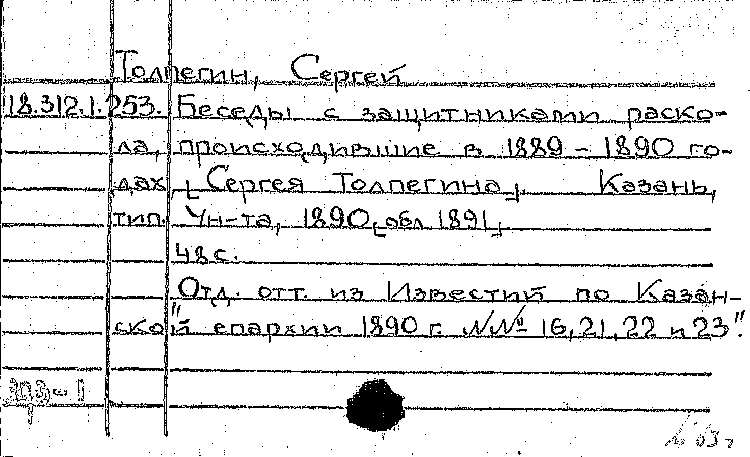 Толпегин, Сергей
18.312.1.253. Беседы с защитниками раско-
ла, происходившие в 1889 – 1890 го-
дах [Сергея Толпегина]. Казань,
тип. Ун-та, 1890, [обл. 1891].
48 с.
Отд. отт. из "Известий по Казан-
ской епархии 1890 г. №№ 16, 21, 22 и 23".